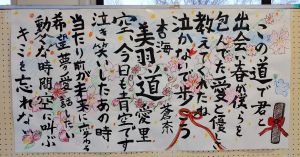 この道で君と
出会った春が僕らを
包んだ愛と優しさ
教えてくれたね
泣かないで歩こう
美羽 道 愛里
空 今日も青空です
泣き笑いしたあの時
当たり前が未来に変わる
希望 夢 愛 話した
動かぬ時間 空に叫ぶ
キミを忘れない